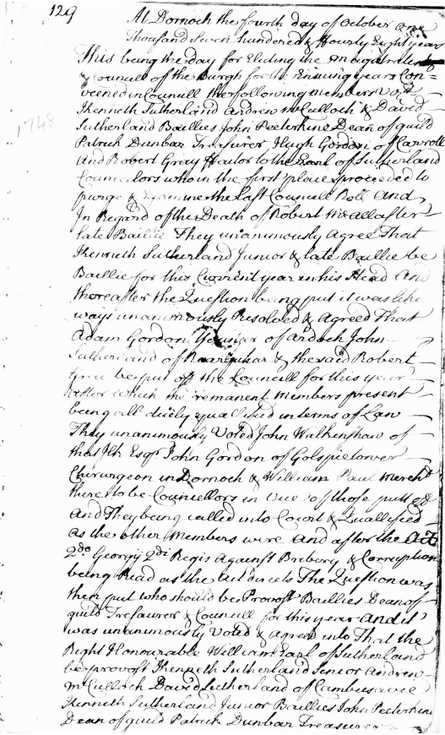 129
At Dornoch the fourth day of October one
Thousand Seven hundred & fourty Eight years
This being the day for Electing the Magistrates
& Councill off the Burgh for the Ensuing year Con-
veened in Councill the following members Vizt
Kenneth Sutherland Andrew McCulloch & David
Sutherland Baillies John Peeterkine Dean of guild
Patrick Dunbar Tresurer Hugh Gordon of Carroll
And Robert Gray ffactor to the Earl of Sutherland
Councilors who in the first place proceeded to
purge & Examine the last Councill Roll And,
1748
In Regard of the Death of Robert McAllaster
late Baillie They unanimously Agree That
Kenneth Sutherland Junior & late Baillie be
Baillie for this Current year in his Stead And
thereafter the Question being put it was like
ways unanimously Resolved & Agreed That
Adam Gordon Younger of Ardoch John
Sutherland of & the said Robert
Gray be put off the Councill for this year
After which the remanent Members present
being all duely qualified in terms of Law
They unanimously Voted John Walkenshaw of
that Ilk Esqr John Gordon of Golspietower
Chirurgeon in Dornoch & William Paul Mercht
there to be Councillors in lieu of those putt off
And They being called into Court & Quallifeed
as the other Members were And after the Act
2do Georgij 2di Regis Against Bribery & Corruption
being Read as the Act directs The Question was
then put who should be Provost Baillies Dean of
guild Tresaurer & Councill for this year And it
was unanimously Voted & Agreed into That the
Right Honourable William Earl of Sutherland
be provost Kenneth Sutherland Senior Andrew
McCulloch David Sutherland of Cambusavie
Kenneth Sutherland Junior Baillies John Peeterkine
Dean of guild Patrick Dunbar Treasurer